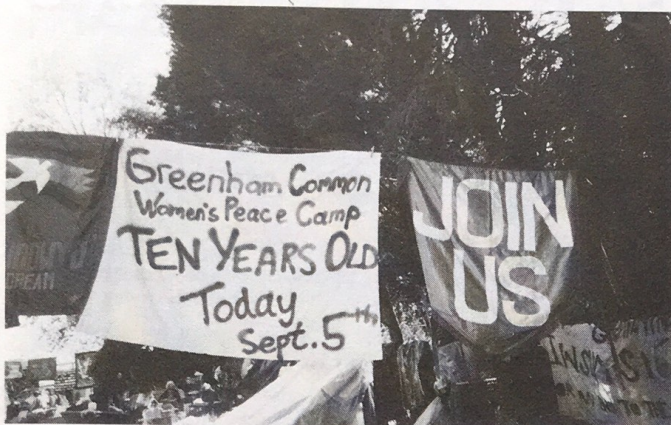 Greenham Common
Women's Peace Camp
TEN YEARS OLD
Today
Sept. 5th
JOIN
US
DREAM